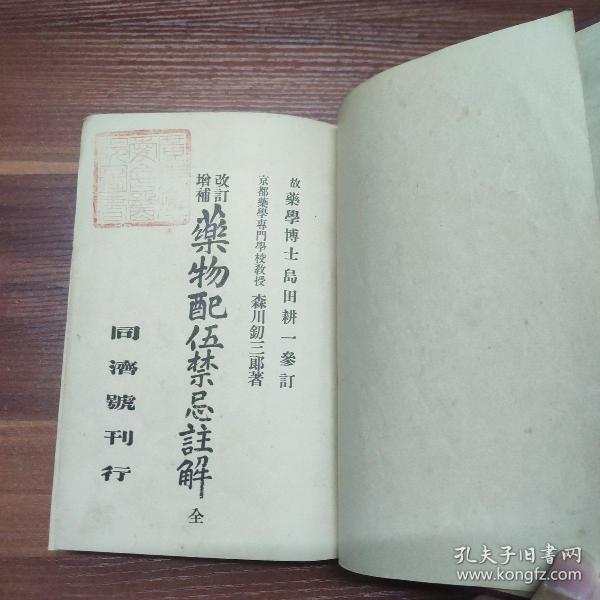 故 藥學博士 島田耕一參訂
京都藥學專門學校教授 森川釖三郎著
改訂
增補
藥物配伍禁忌註解 全
同濟號刊行
孔夫子旧书网
www.kongfz.com